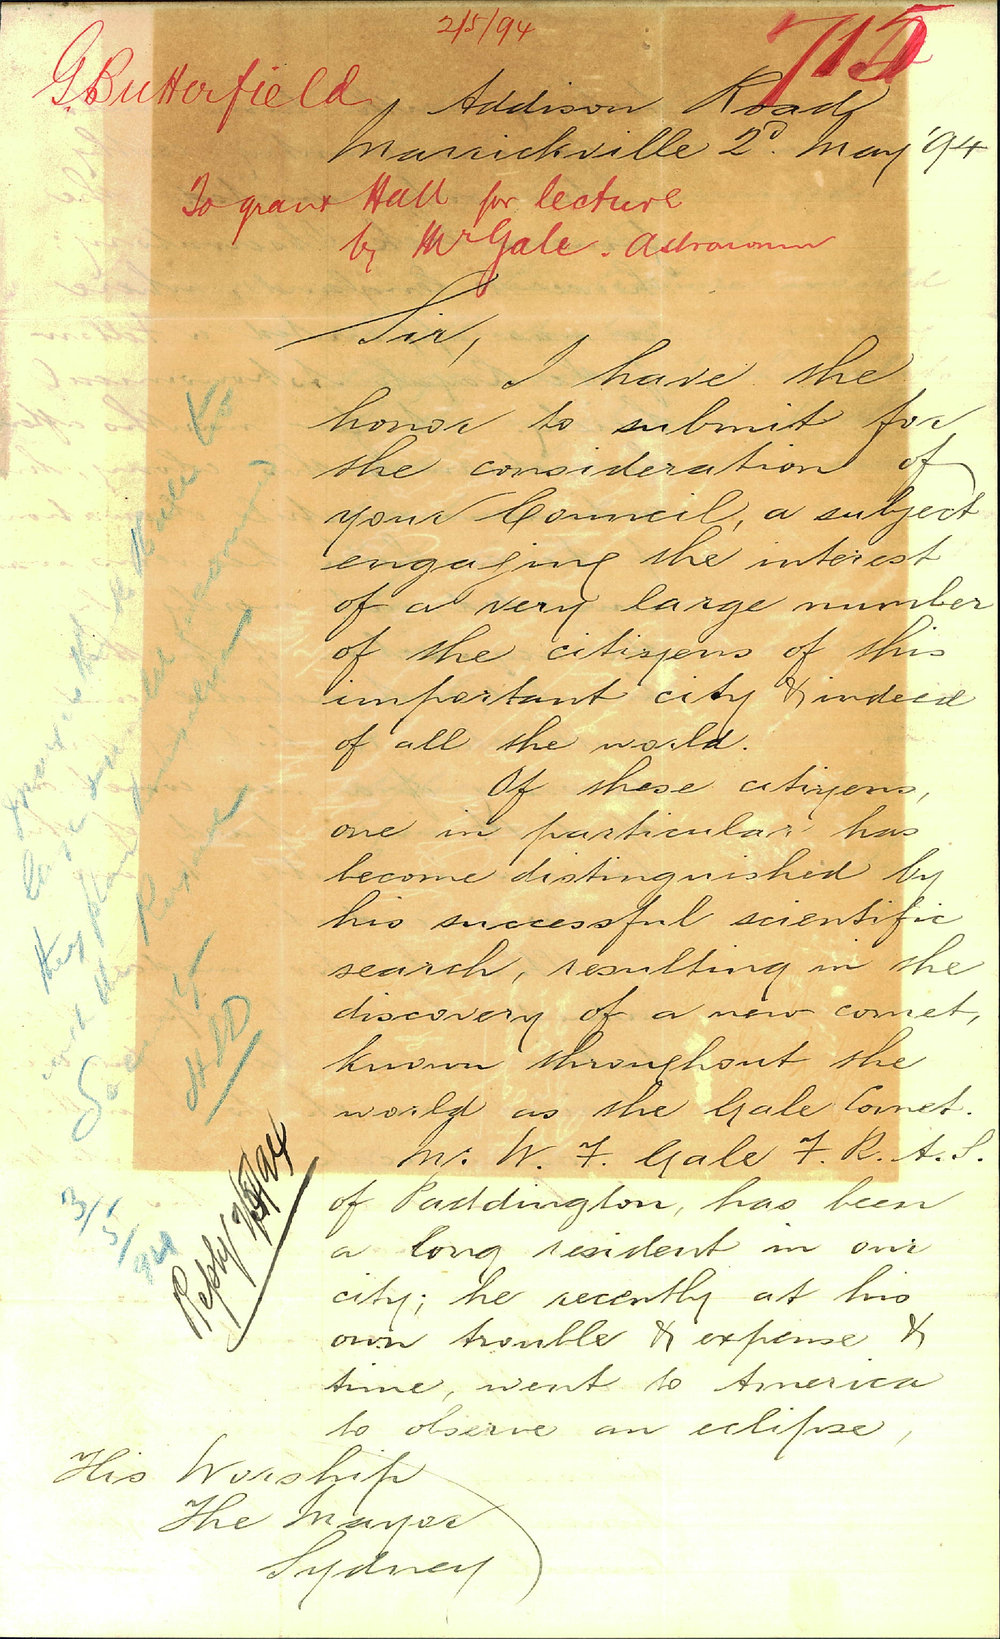 2/5/94
715
G. Butterfield
Addison Road
Marrickville 2d. May '94
To grant Hall for lecture
by Mr Gale. Astronomer
Sir,
I have the
honor to submit for
the consideration of
your Council, a subject
engaging the interest
of a very large number
of the citizens of this
important city & indeed
of all the world.
Of these citizens,
one in particular has
become distinguished by
his successful scientific
search, resulting in the
discovery of a new comet,
known throughout the
world as the Gale Comet.
Mr. W. F. Gale F. R. A. S.
of Paddington, has been
a long resident in our
city; he recently at his
own trouble & expense &
time, went to America
to observe an eclipse,
His Worship
The Mayor
Sydney
3/5/94
Reply